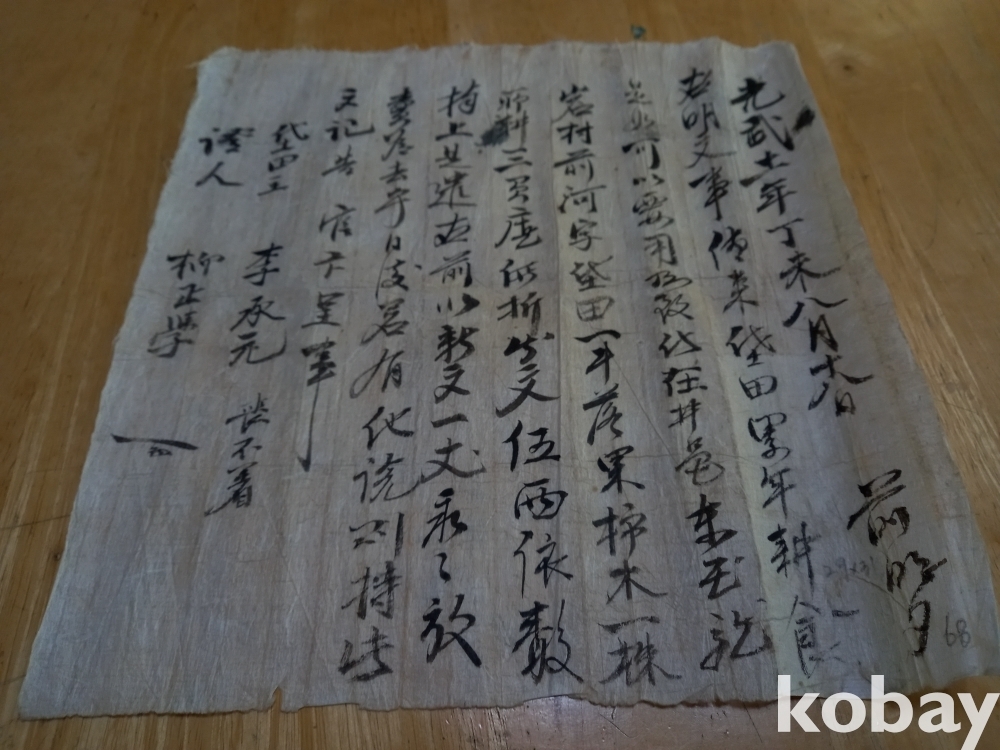 光武十一年丁未八月十八日 前明文
右明文事傳來垈田累年耕食
可以要用所致 伏在井邑東玉龍
岩村前河字垈田一斗落果柿木一株
所耕三負庫 折価文伍兩依數
捧上是遣右前以新文一丈永永放
賣爲去乎日後若有他說則持此
文記告 官卞呈事
垈田主 李承元 謹不着
證人 柳正學
68
kobay